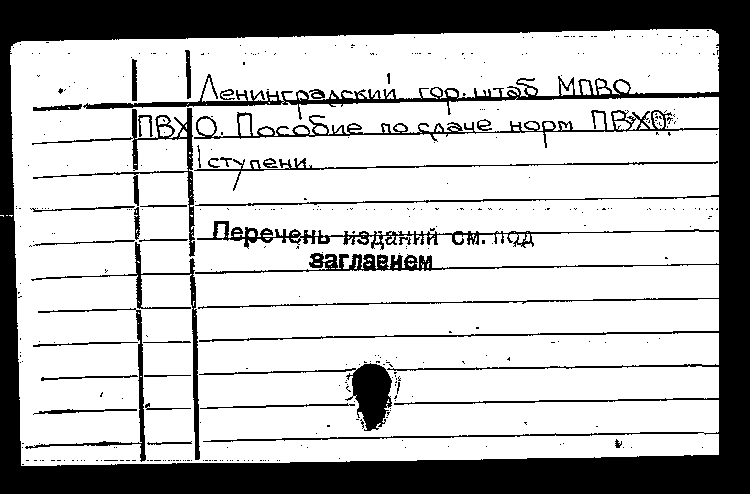 Ленинградский гор. штаб МПВО.
ПВХО. Пособие по сдаче норм ПВХО
I ступени.
Перечень изданий см. под
заглавием